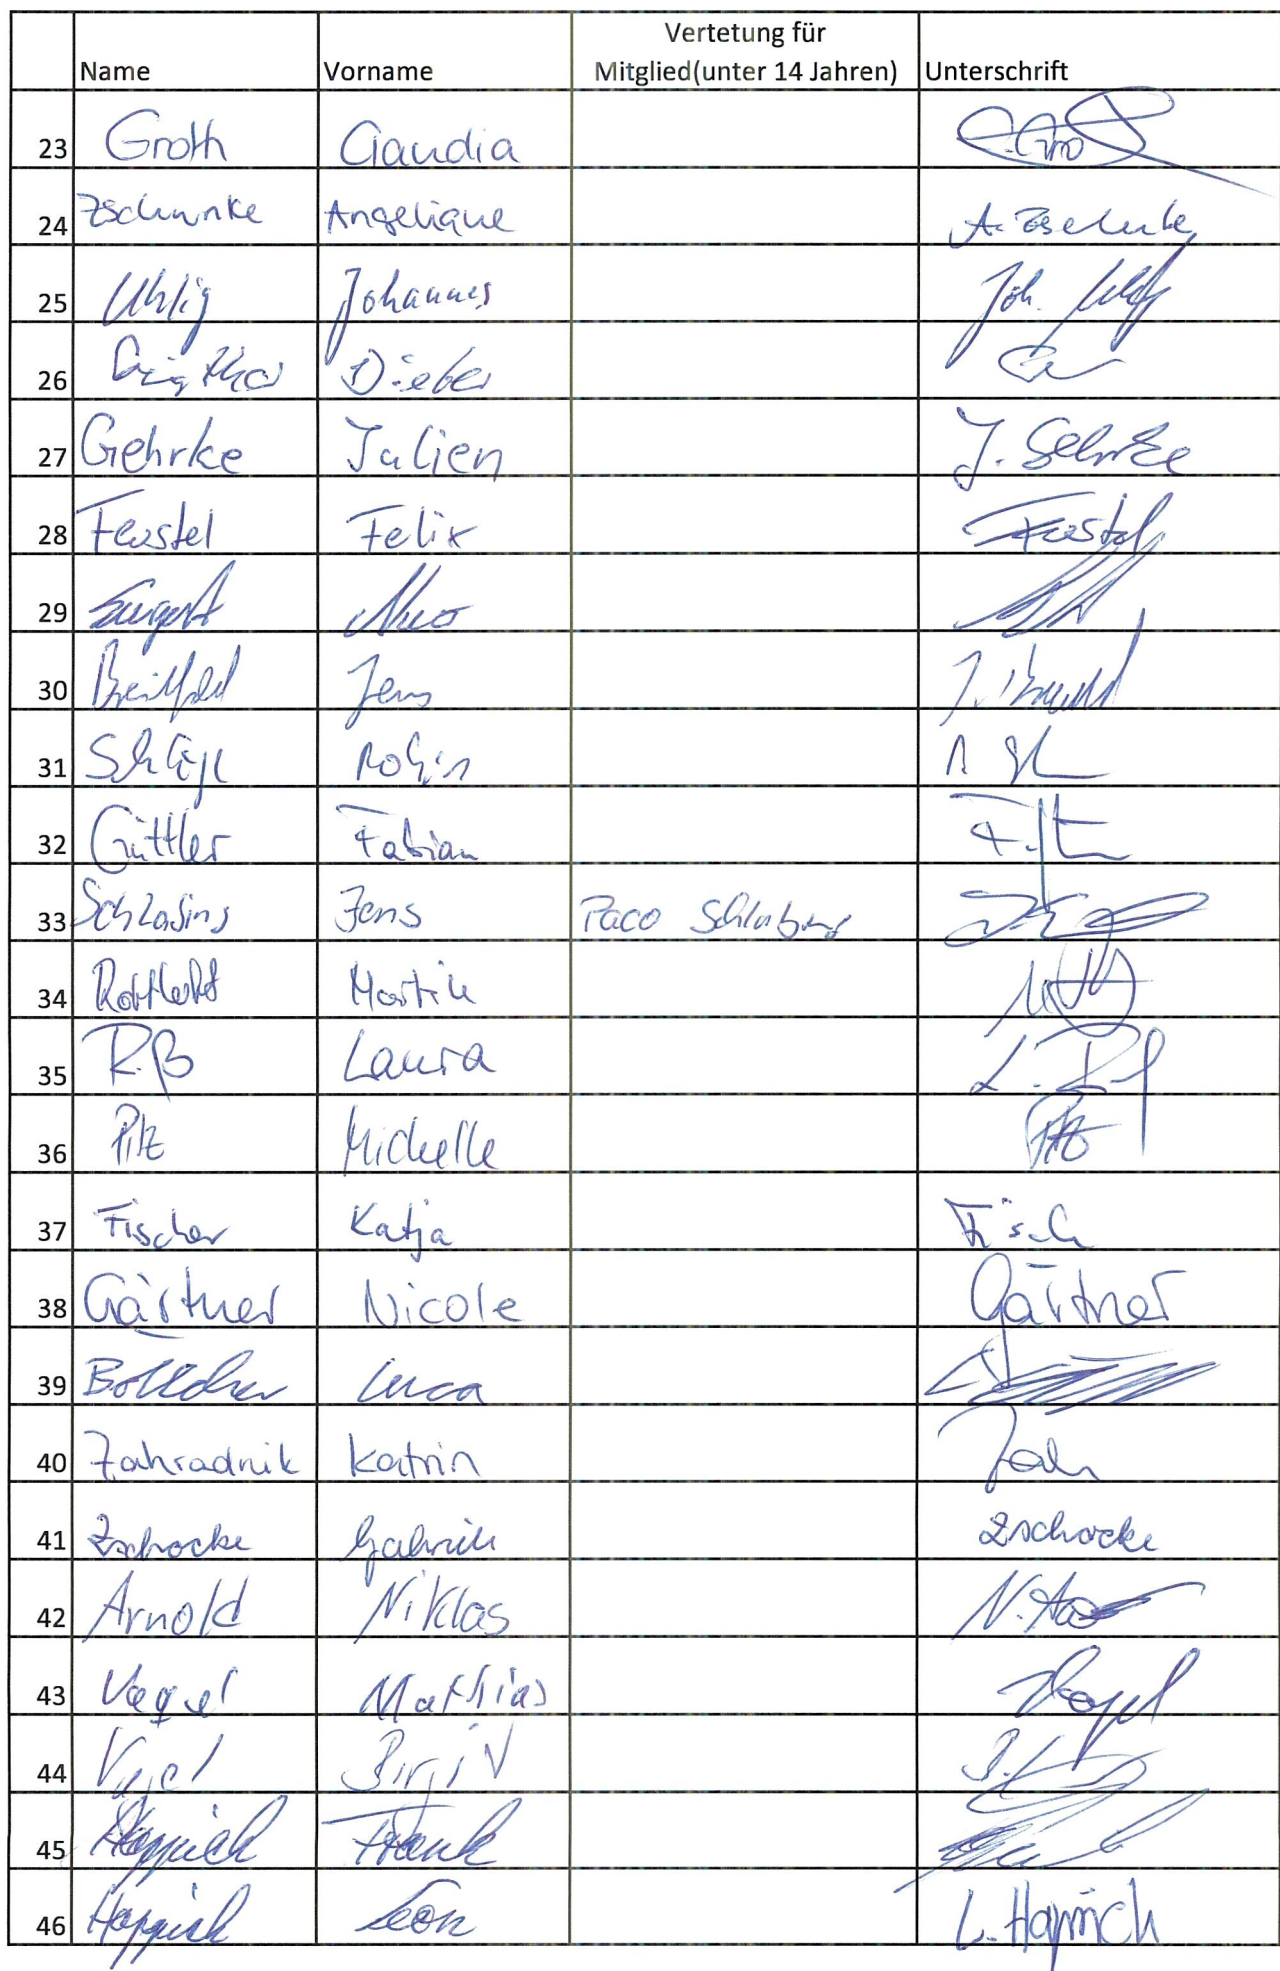 Name Vorname Vertetung für Mitglied(unter 14 Jahren) Unterschrift
23 Groth Claudia
24 Zschunke Angelique
25 Uhlig Johannes Joh. Uhlig
26 Dieter
27 Gehrke Julien J. Gehrke
28 Feustel Felix Feustel
29 Nico
30 Breitfeld Jens
31 Robin
32 Güttler Fabian
33 Jens Paco
34 Martin
35 Laura
36 Pilz Michelle Pilz
37 Fischer Katja Fisch
38 Gärtner Nicole Gärtner
39 Böttcher Luca
40 Zahradnik Katrin Zah
41 Zschocke Gabriele Zschocke
42 Arnold Niklas
43 Vogel Mathias Vogel
44 Vogel Birgit
45 Happich Frank
46 Happich Leon L. Happich